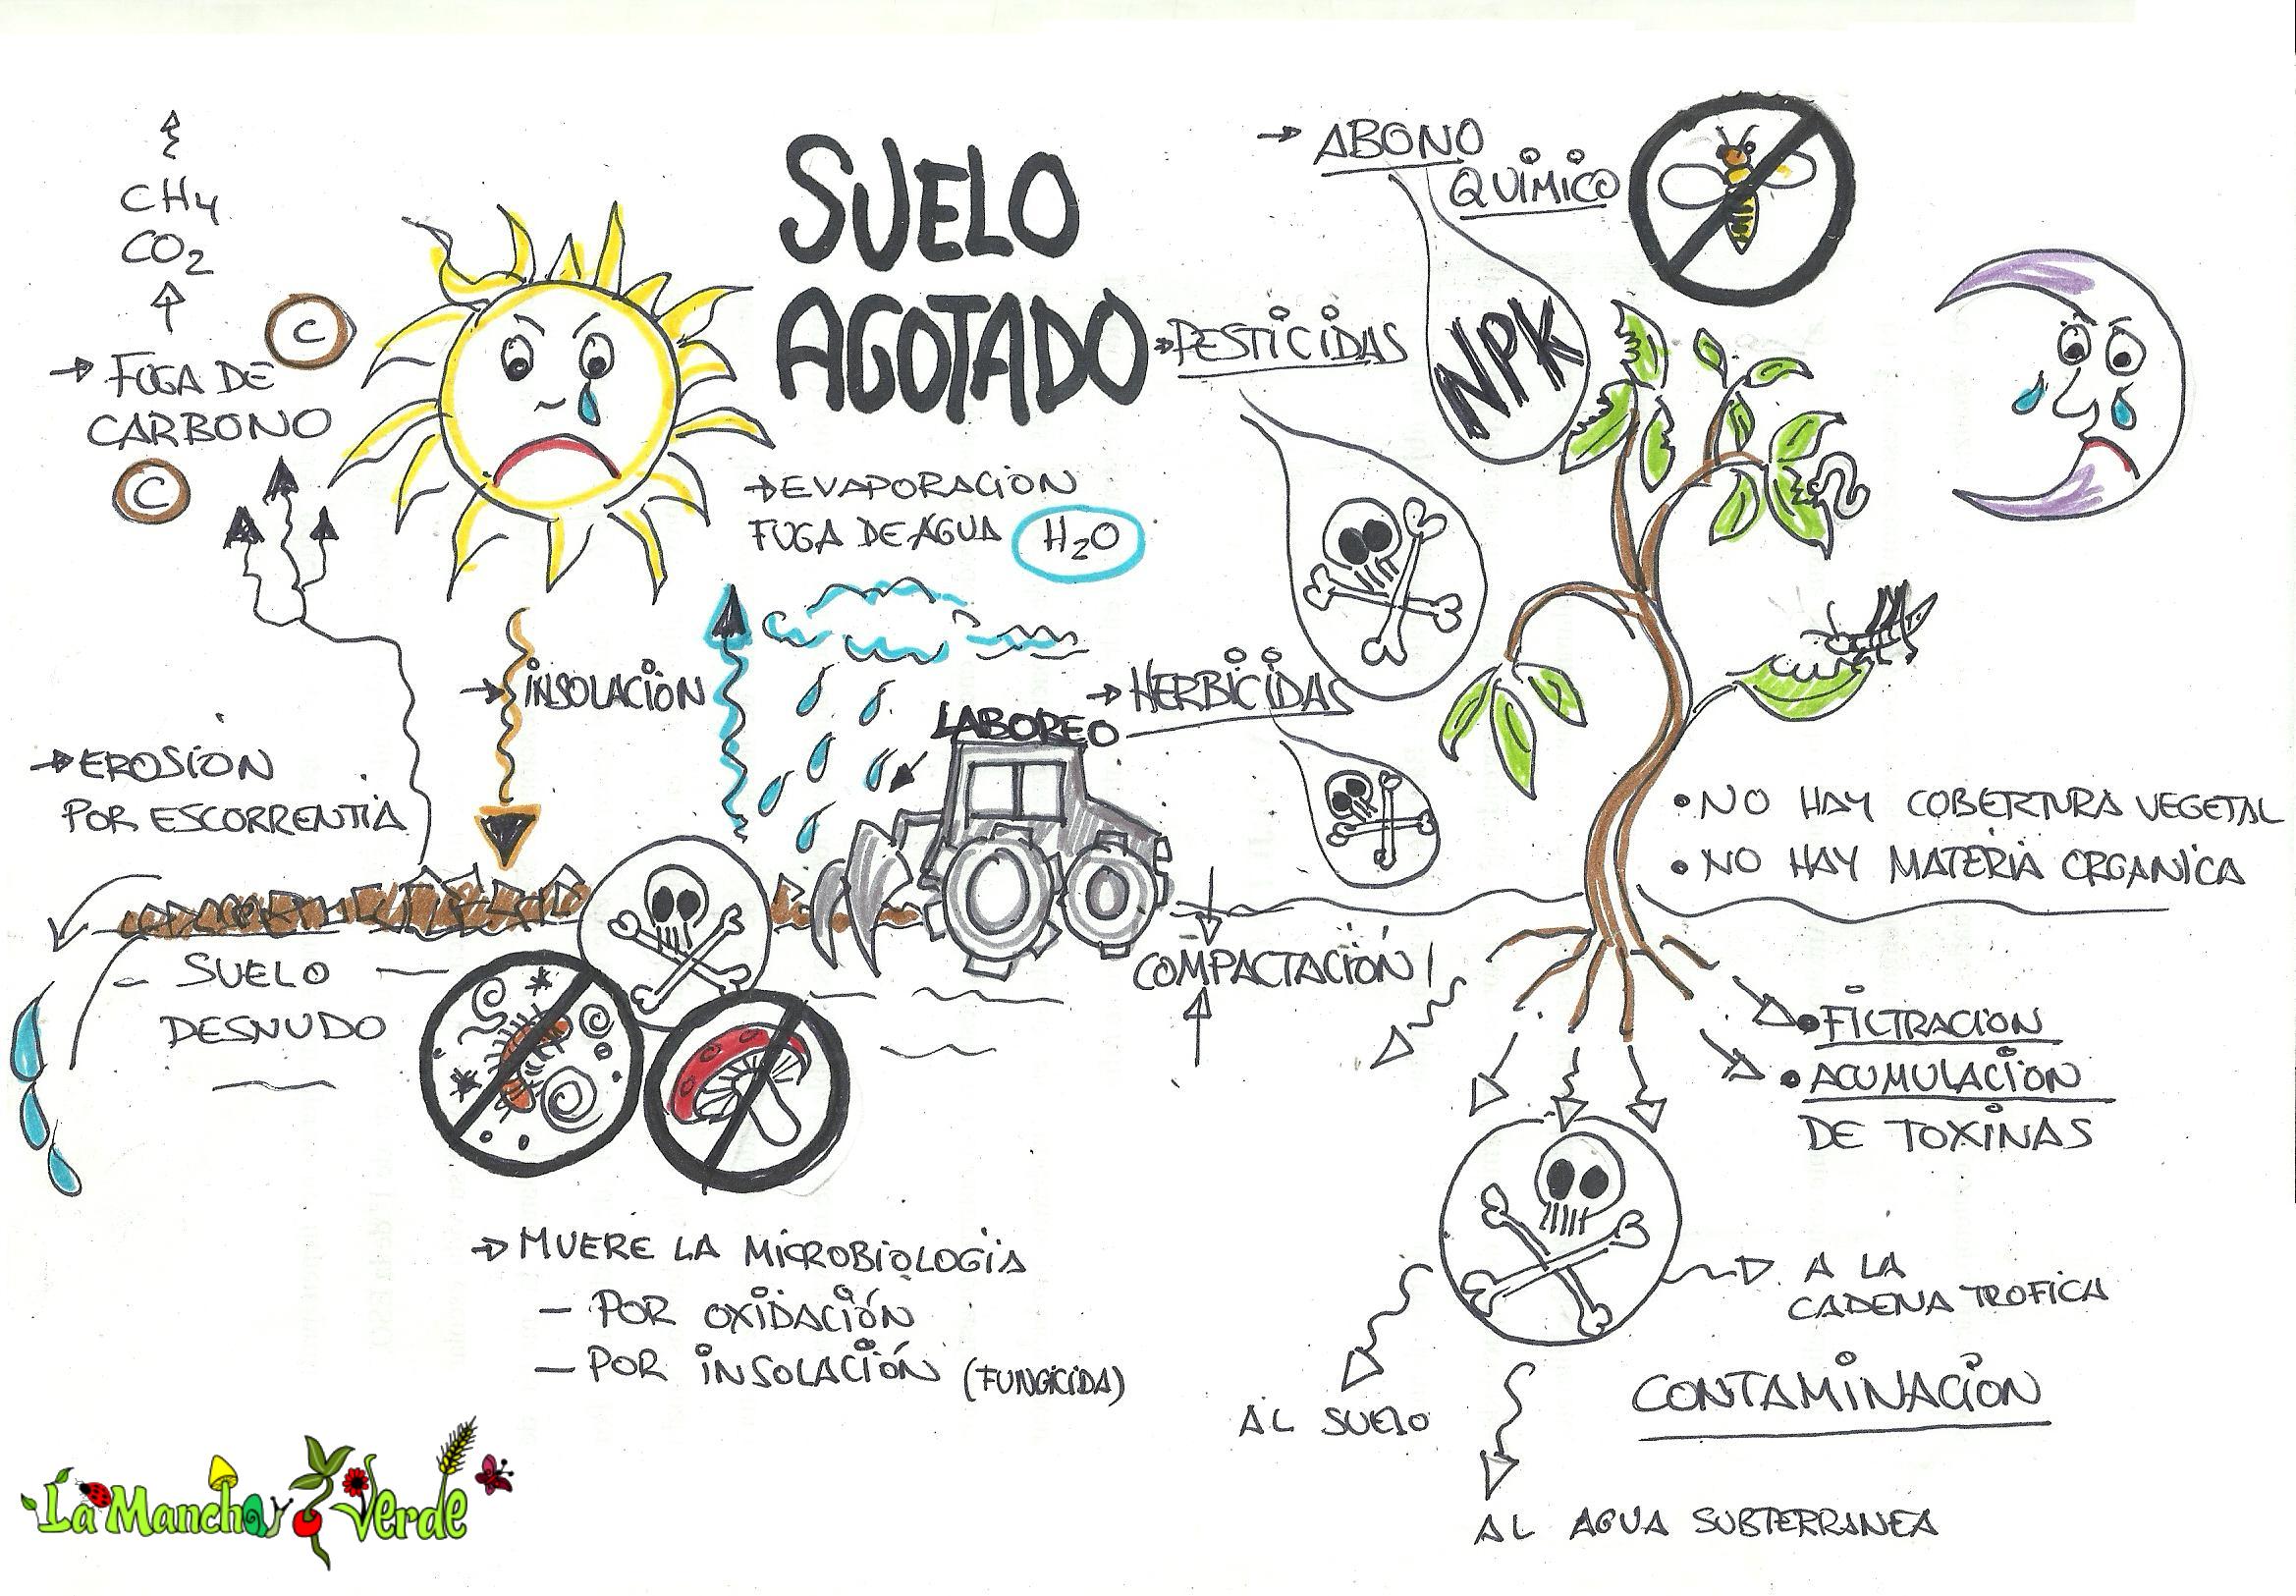 SUELO
AGOTADO
CH4
CO2
C
→ FUGA DE
CARBONO
C
→ EVAPORACION
FUGA DE AGUA H2O
→ INSOLACION
→ EROSION
POR ESCORRENTIA
SUELO
DESNUDO
→ ABONO
QUIMICO
NPK
→ PESTICIDAS
→ HERBICIDAS
LABOREO
COMPACTACIÓN!
• NO HAY COBERTURA VEGETAL
• NO HAY MATERIA ORGANICA
• FILTRACION
• ACUMULACION
DE TOXINAS
→ MUERE LA MICROBIOLOGIA
- POR OXIDACIÓN
- POR INSOLACIÓN (FUNGICIDA)
A LA
CADENA TROFICA
AL SUELO
CONTAMINACION
AL AGUA SUBTERRANEA
La Mancha Verde